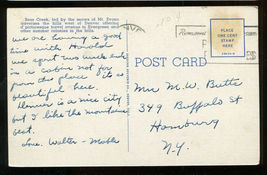 Bear Creek, fed by the snows of Mt. Evans
traverses the hills west of Denver offering
of picturesque travel avenue to Evergreen and
other summer colonies in the hills.
we are having a good
time with Harold
we spent two weeks
in a cabin not far
from this place it is
beautiful here.
Denver is a nice city
but I like the mountains
best.
Love. Walter - Mable
POST CARD
PLACE
ONE CENT
STAMP
HERE
Mrs M. W. Butts
349 Buffalo St
Hamburg
N.Y.